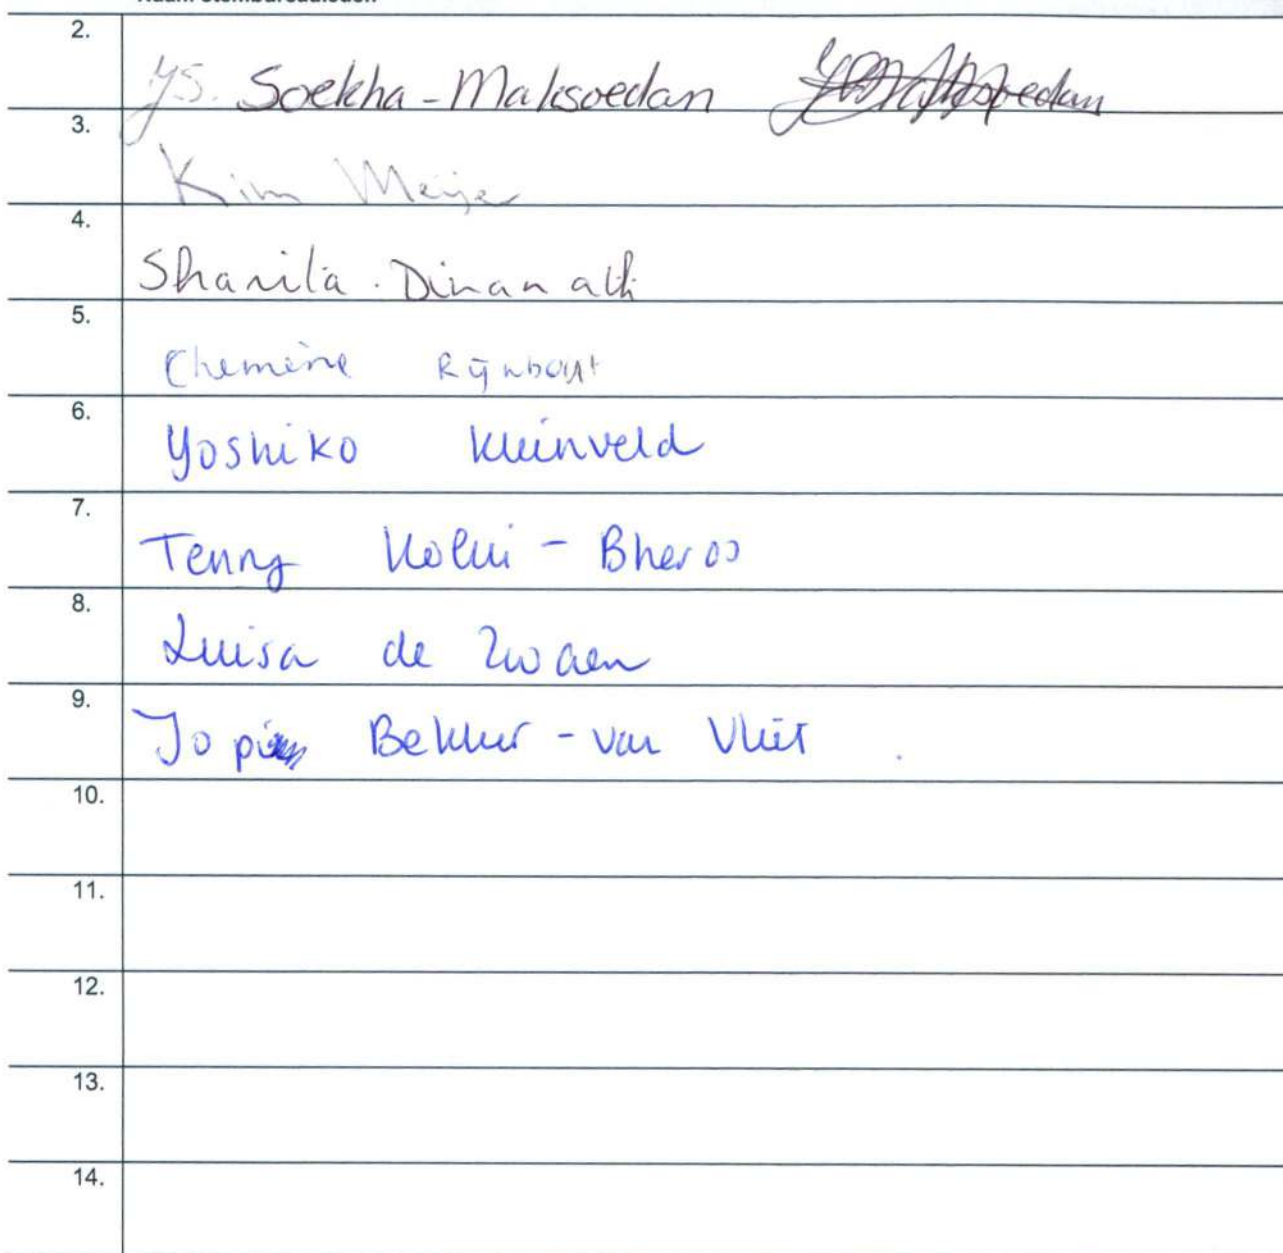 2.
YS. Soekha-Maksoedan
3.
Kim Meijer
4.
Sharila Dinanath
5.
Chemène Rijnbout
6.
Yoshiko Kleinveld
7.
Tenny Kolki - Bheroo
8.
Luisa de Zwaen
9.
Jopie Bekker - van Vliet
10.
11.
12.
13.
14.